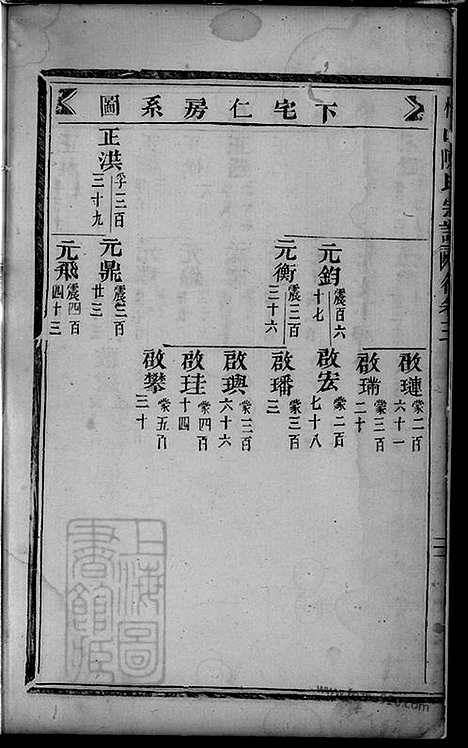 下宅仁房系圖
正洪 孚三百三十九
元鈞 震百六十七
元衡 震三百三十六
元鼎 震三百廿三
元飛 震四百四十三
啟璉 蒙二百六十一
啟瑞 蒙三百二十
啟宏 蒙二百七十八
啟璠 蒙三百三
啟璵 蒙二百六十六
啟珪 蒙四百十四
啟攀 蒙五百三十
上海圖書館藏